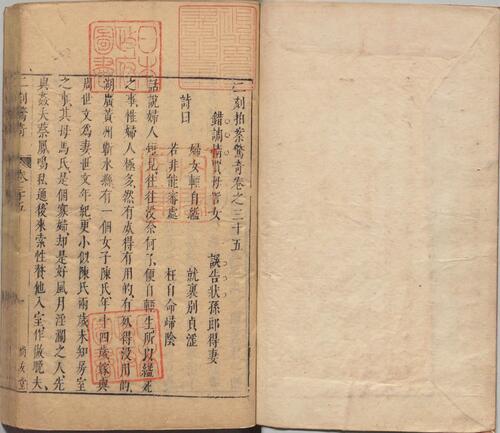 二刻拍案驚奇卷之三十五
錯調情賈母詈女　誤告狀孫郎得妻
詩曰
婦女輕自縊　就裏別貞淫
若非能審處　枉自命歸陰
話說婦人短見往往沒奈何了便自輕生所以縊死
之事惟婦人極多然有死得有用的有死得沒用的
湖廣黃州蘄水縣有一個女子陳氏年十四歲嫁與
周世文為妻世文年紀更小似陳氏兩歲未知房室
之事其母馬氏是個寡婦却是好風月淫濫之人先
與姦夫蔡鳳鳴私通後來索性贅他入室作做晚夫
二刻驚奇　卷三十五　尚友堂
日本
政府
圖書